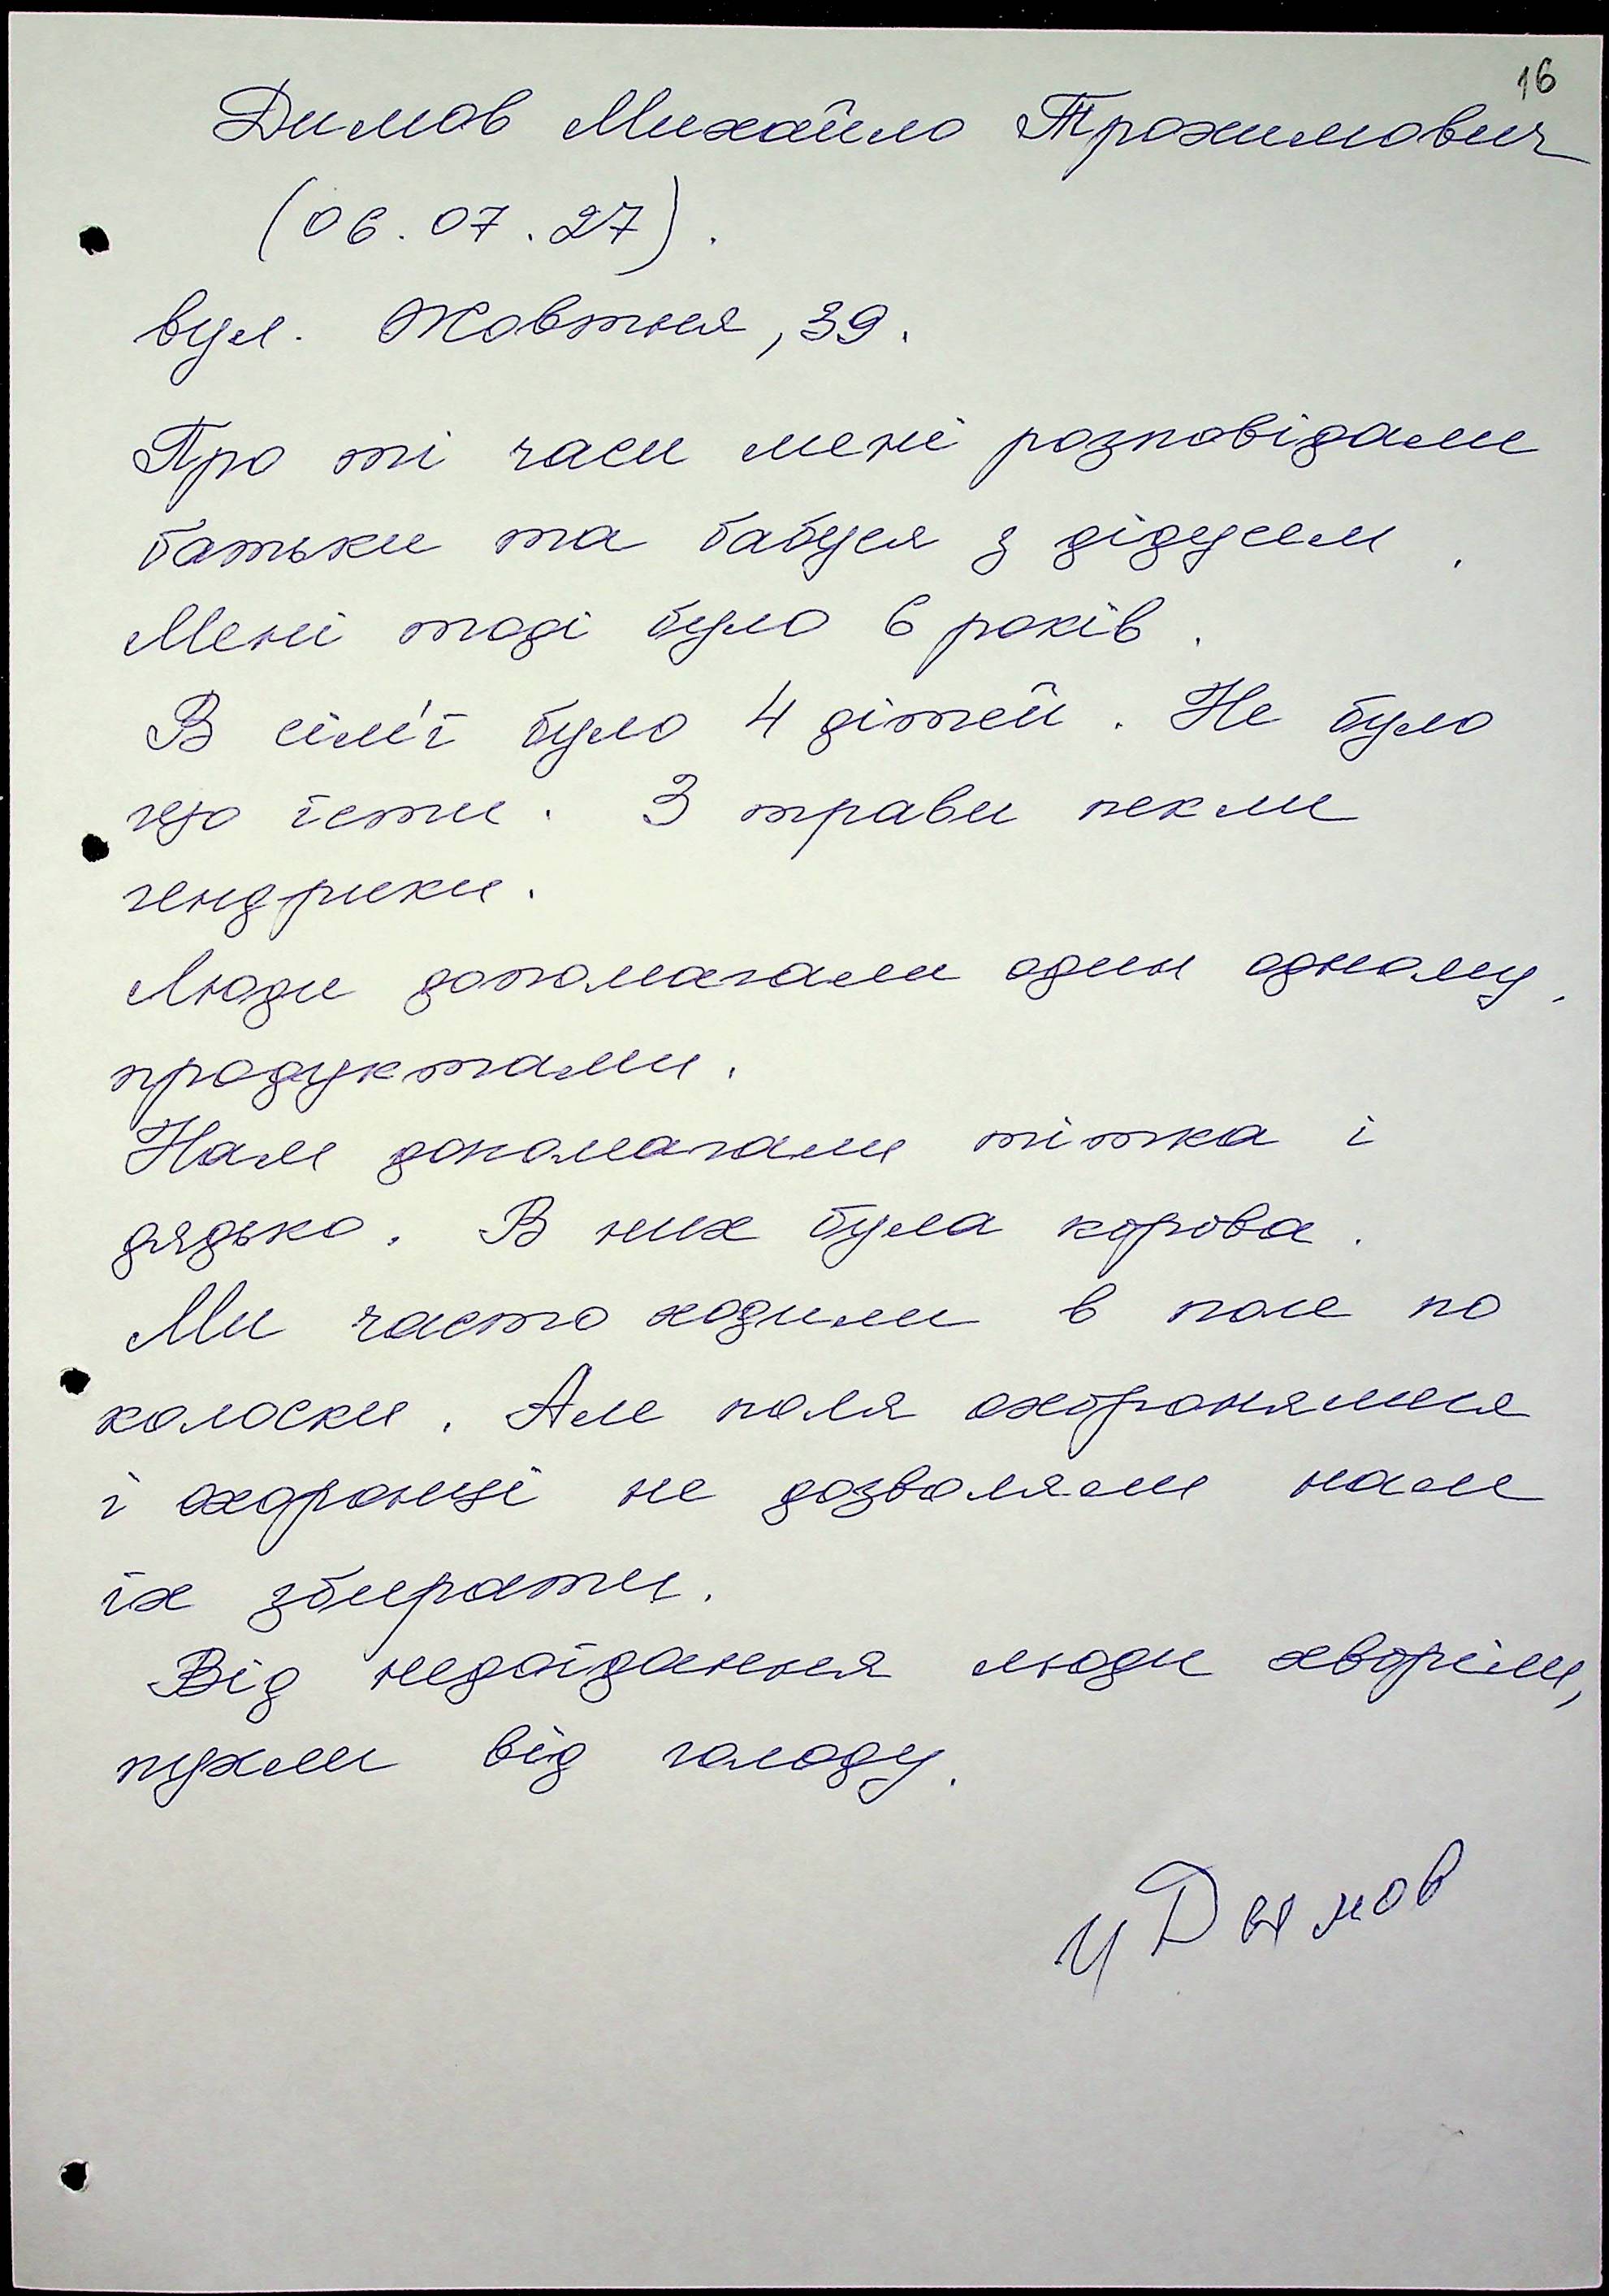 16
Димов Михайло Трохимович
(06.07.27).
вул. Жовтня, 39.
Про ті часи мені розповідали
батьки та бабуся з дідусем.
Мені тоді було 6 років.
В сім'ї було 4 дітей. Не було
що їсти. З трави пекли
чендрики.
Люди допомагали один одному
продуктами.
Нам допомагали тітка і
дядько. В них була корова.
Ми часто ходили в поле по
колоски. Але поля охоронялися
і охоронці не дозволяли нам
їх збирати.
Від недоїдання люди хворіли,
пухли від голоду.
Дымов